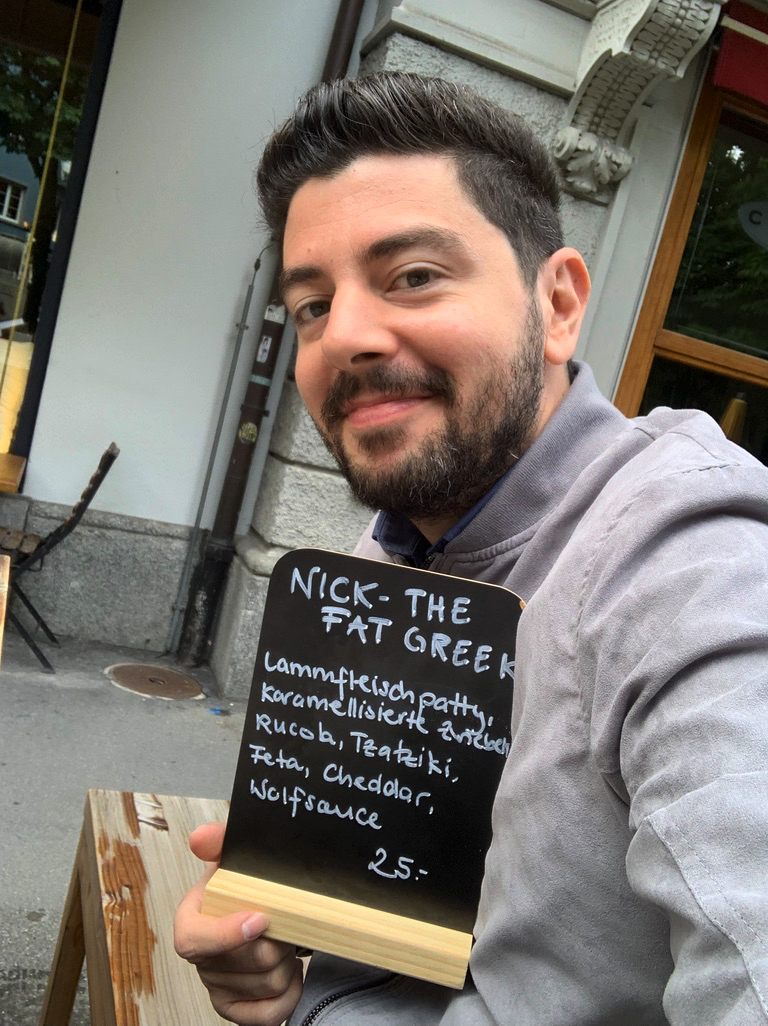 NICK- THE
FAT GREEK
Lammfleischpatty,
Karamellisierte Zwiebeln
Rucola, Tzatziki,
Feta, Cheddar,
Wolfsauce
25.-
C